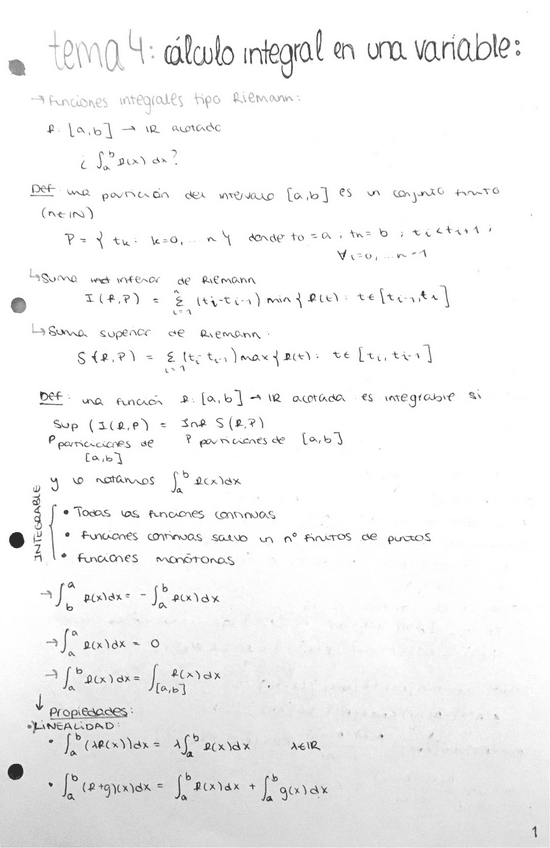 tema 4: cálculo integral en una variable:
→ Funciones integrales tipo Riemann:
f: [a,b] → IR acotada
¿ ∫_a^b f(x) dx?
Def: una partición del intervalo [a,b] es un conjunto finito
(n∈IN)
P = { t_k: k=0, ... n} donde t_0 = a, t_n = b ; t_i < t_{i+1},
∀i=0,... n-1
↳ Suma inferior de Riemann
I(f,P) = Σ_{i=1}^n (t_i - t_{i-1}) min { f(t): t∈[t_{i-1}, t_i]
↳ Suma superior de Riemann:
S(f,P) = Σ_{i=1} (t_i - t_{i-1}) max { f(t): t∈ [t_i, t_{i-1}]
Def: una función f: [a,b] → IR acotada es integrable si
Sup (I(f,P) = Inf S(f,P)
P particiones de P particiones de [a,b]
[a,b]
y lo notamos ∫_a^b f(x)dx
INTEGRABLE
• Todas las funciones continuas
• funciones continuas salvo un nº finitos de puntos
• funciones monótonas
→ ∫_b^a f(x)dx = - ∫_a^b f(x)dx
→ ∫_a^a f(x)dx = 0
→ ∫_a^b f(x)dx = ∫_{[a,b]} f(x)dx
↓ Propiedades:
• LINEALIDAD:
• ∫_a^b (λf(x))dx = λ∫_a^b f(x)dx λ∈IR
• ∫_a^b (f+g)(x)dx = ∫_a^b f(x)dx + ∫_a^b g(x)dx
1